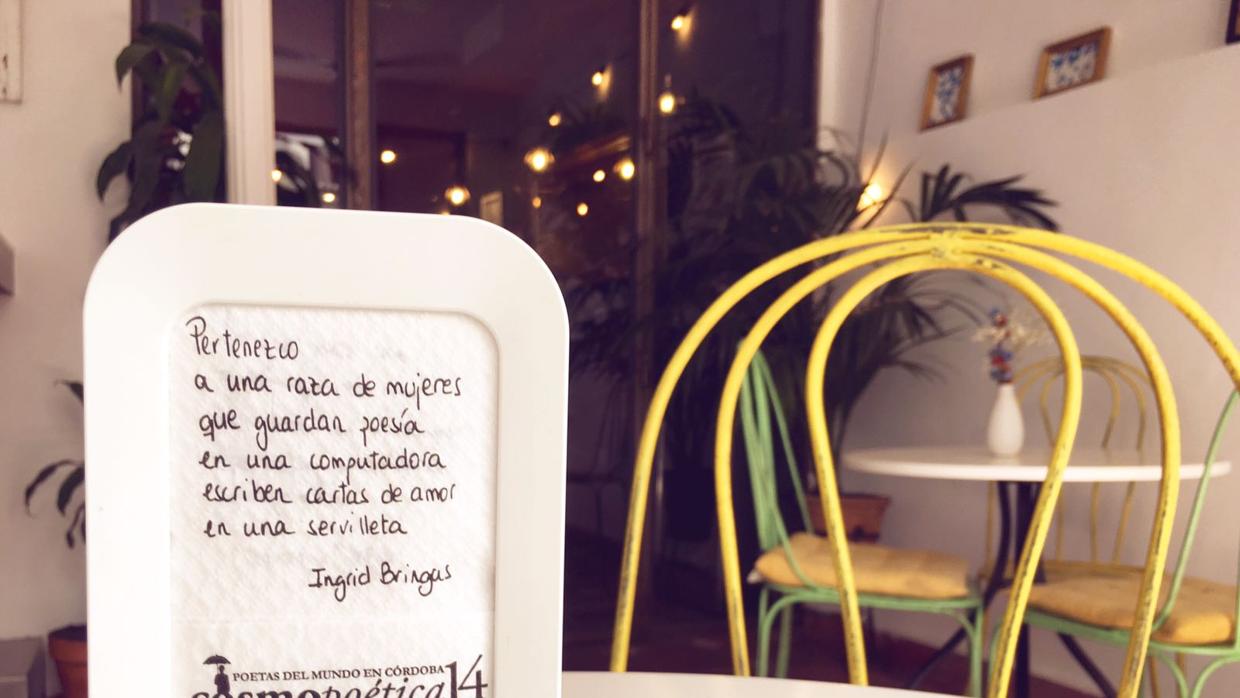 Pertenezco
a una raza de mujeres
que guardan poesía
en una computadora
escriben cartas de amor
en una servilleta
Ingrid Bringas
POETAS DEL MUNDO EN CÓRDOBA
cosmopoética 14